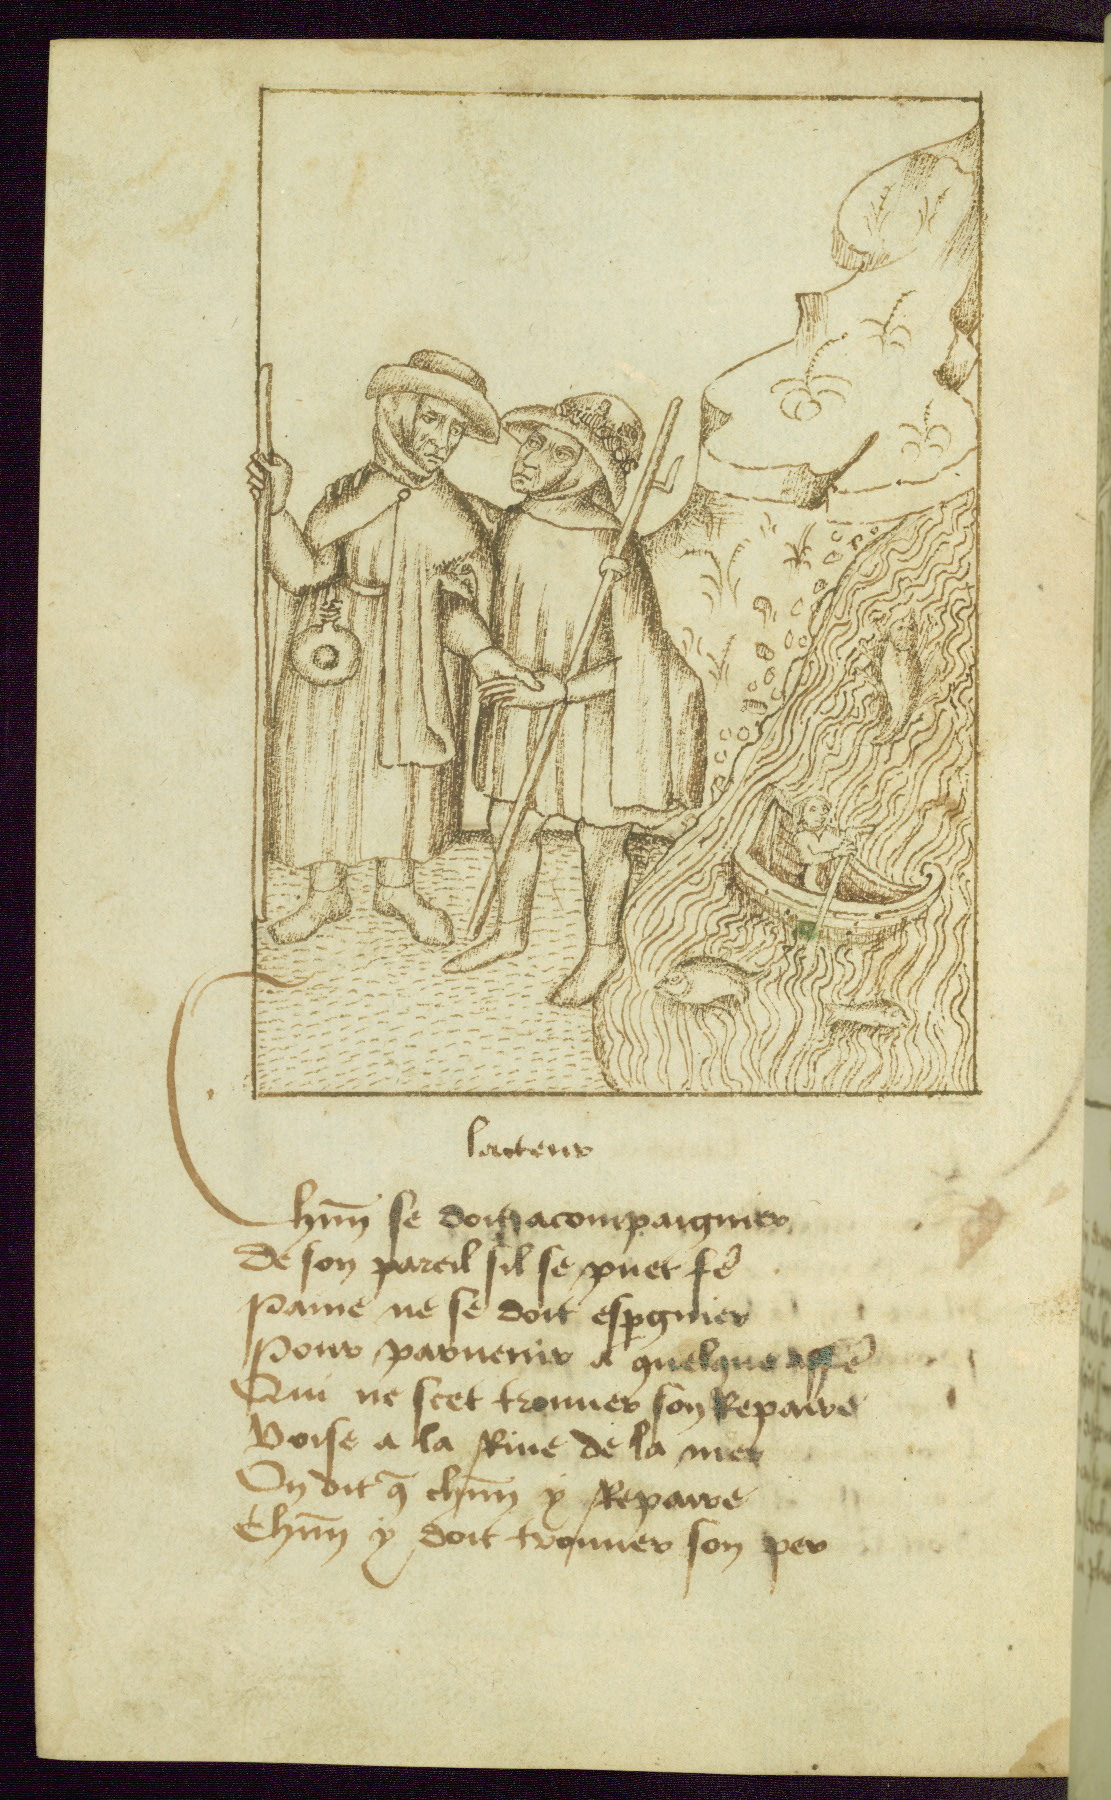 lacteur
Chũn se doit acompaignier
De son pareil sil se puet fẽ
Paine ne se doit espgnier
Pour parvenir a quelque affẽ
Qui ne scet trouver son Repaire
Voise a la Rive de la mer
On dit q̃ chũn y Repaire
Chũn y doit trouver son per